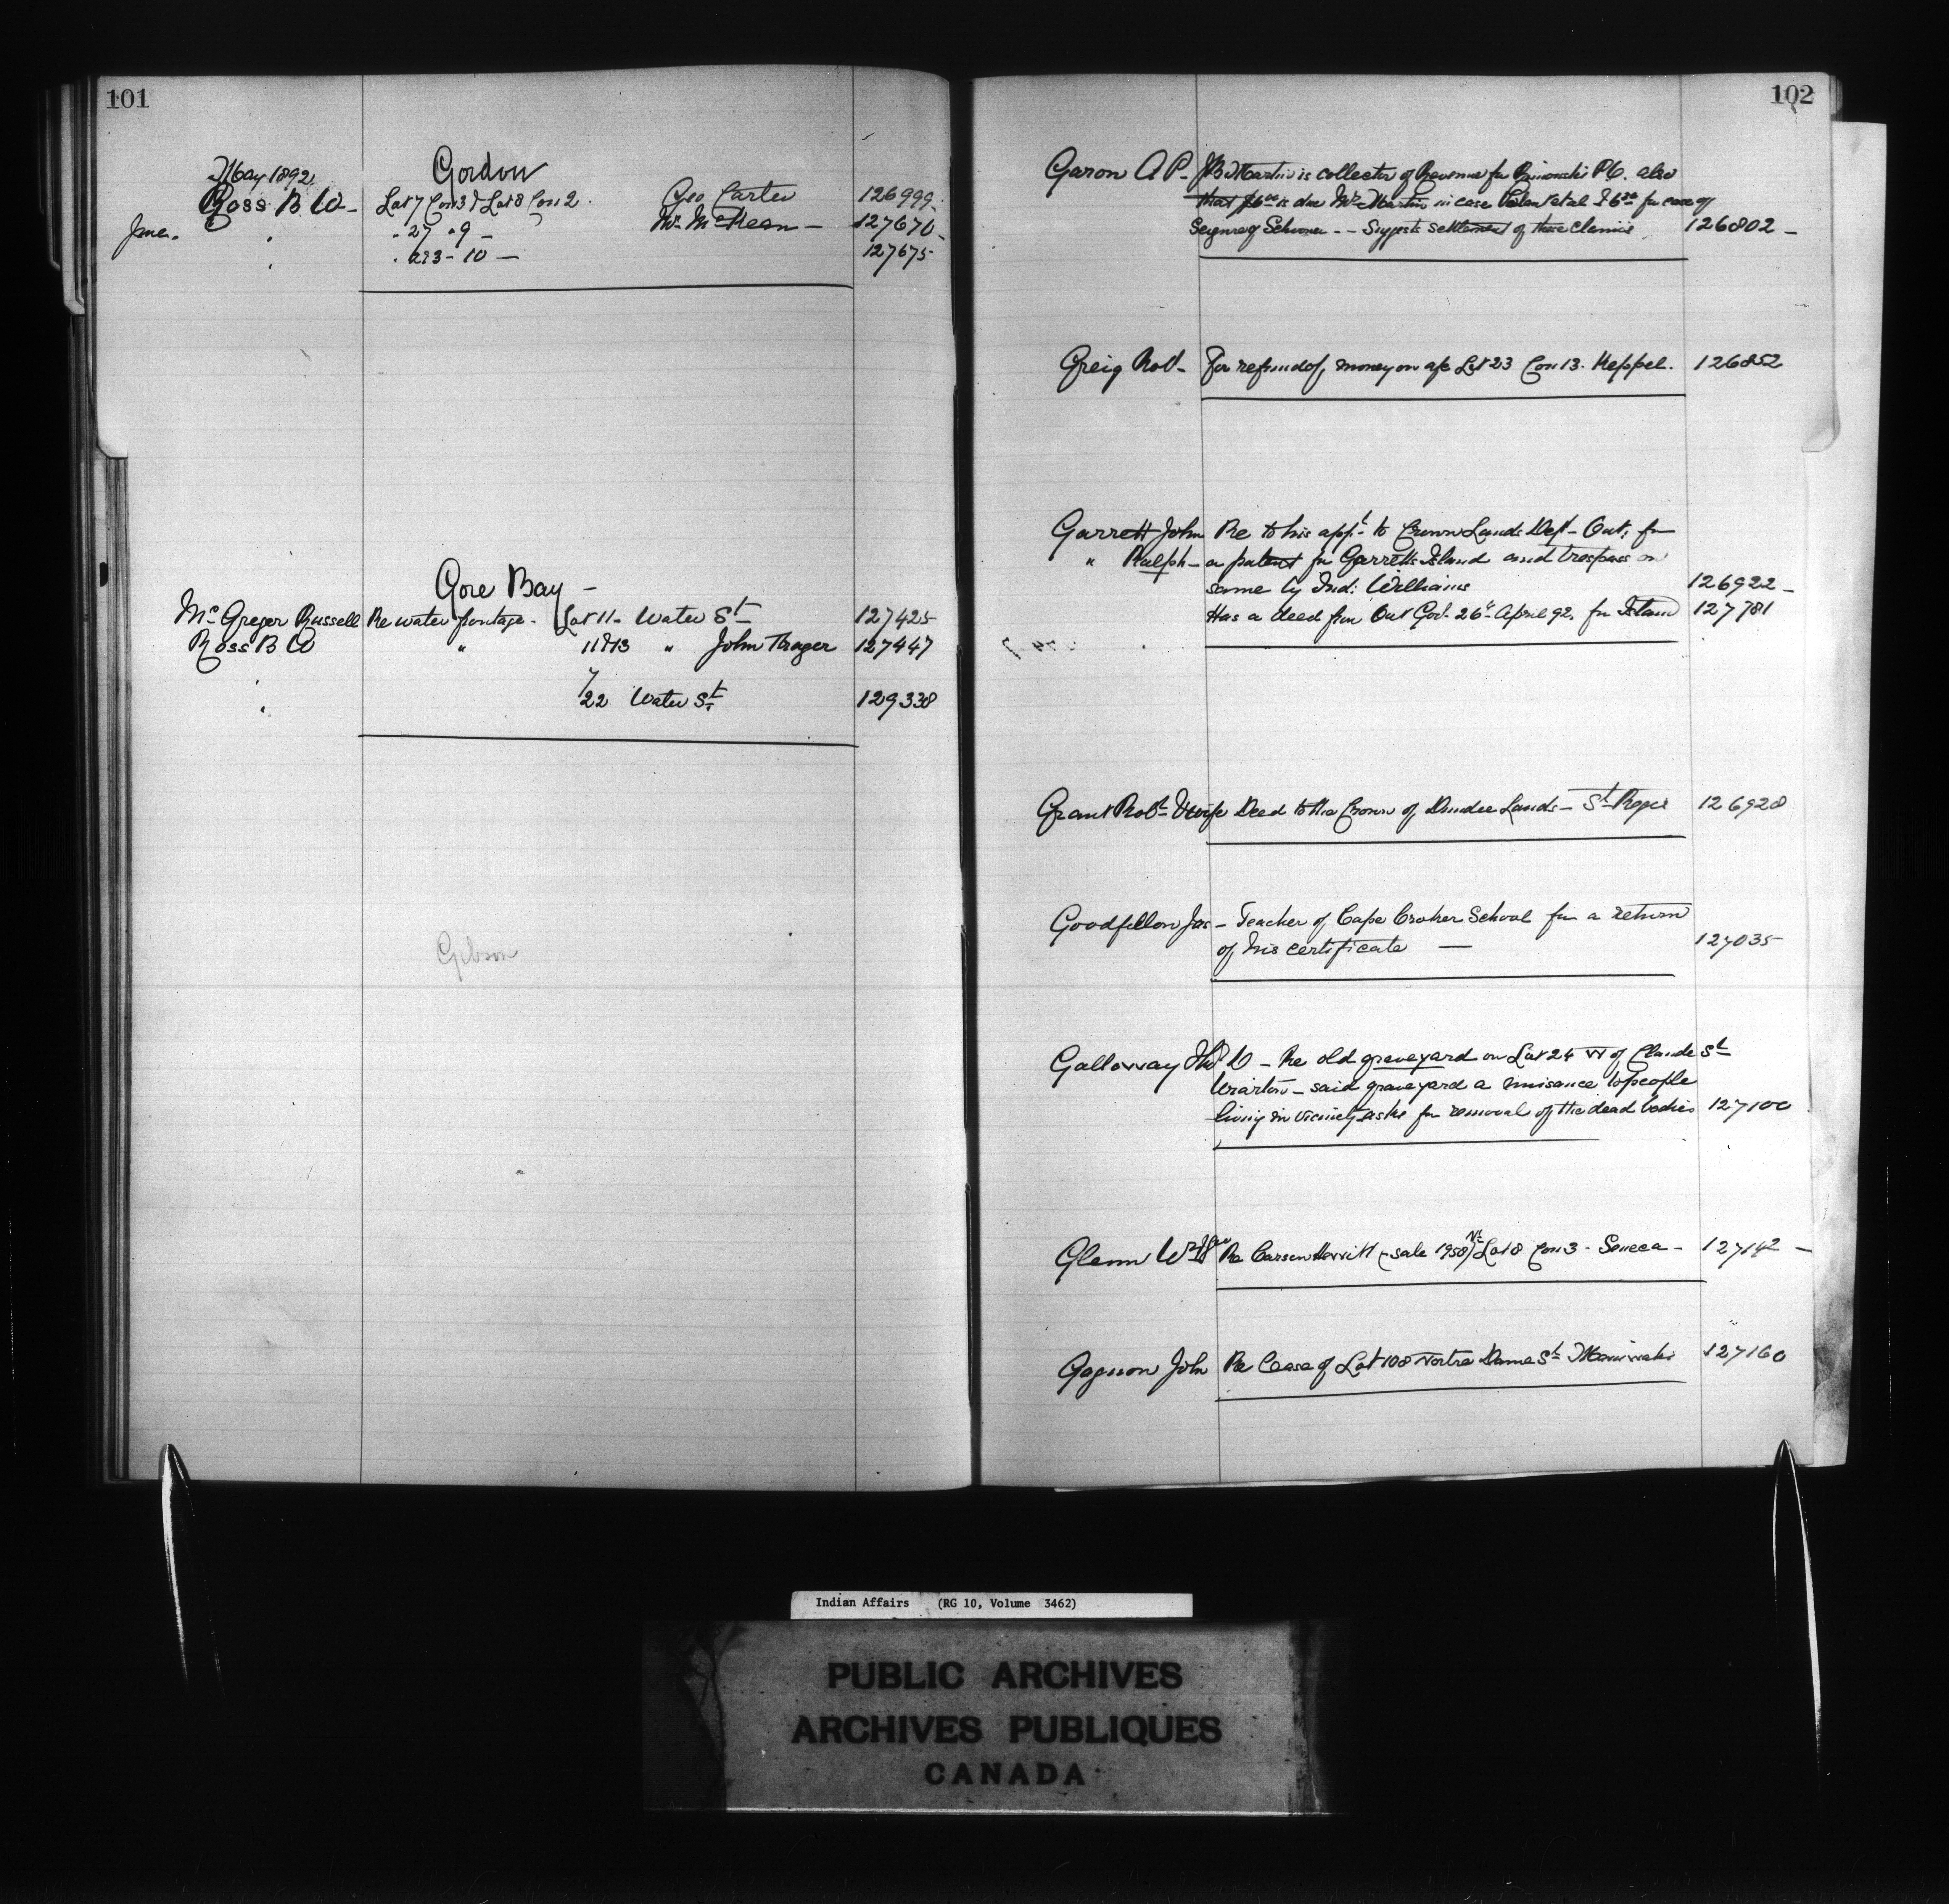 101
May 1892
Gordon
Ross B W - Lot 7 Con 3 & Lot 8 Con 2. Geo Carter 126999
June. " - 27 " 9 - Wm McKean - 127670
" - 293 - 10 - 127675
Gore Bay -
McGregor Russell Re water frontage - Lot 11 - Water St 127425
Ross B W " 11 & 13 " John Thager 127447
" 22 Water St 129338
Gibson
102
Garon A P - J B Martin is collector of Revenue for Rimouski P.Q. also
that $6.00 is due Mr Martin in case et al & 6.00 for case of
Schooner - - Suggests settlement of these claims 126802 -
Greig Robt - For refund of money on a/c Lot 23 Con 13. Keppel. 126852
Garrett John Re to his appt to Crown Lands Dept - Ont, for
" Ralph - a patent for Garretts Island and trespass on
same by Ind: Williams 126922 -
Has a deed from Ont Govt 26th April 92. for Island 127781
Grant Robt & wife Deed to the Crown of Dundee Lands - St Regis 126928
Goodfellow Jas - Teacher of Cape Croker School for a return
of his certificate - 127035
Galloway D - Re old graveyard on Lot 24 W of Claude St
Wiarton - said graveyard a nuisance to people
living in vicinity asks for removal of the dead bodies 127100
Glenn Re Carson Merritt (sale 1958) N½ Lot 8 Con 3 - Seneca - 127142 -
Gagnon John Re Lease of Lot 108 Notre Dame St Maniwaki 127160
Indian Affairs (RG 10, Volume 3462)
PUBLIC ARCHIVES
ARCHIVES PUBLIQUES
CANADA